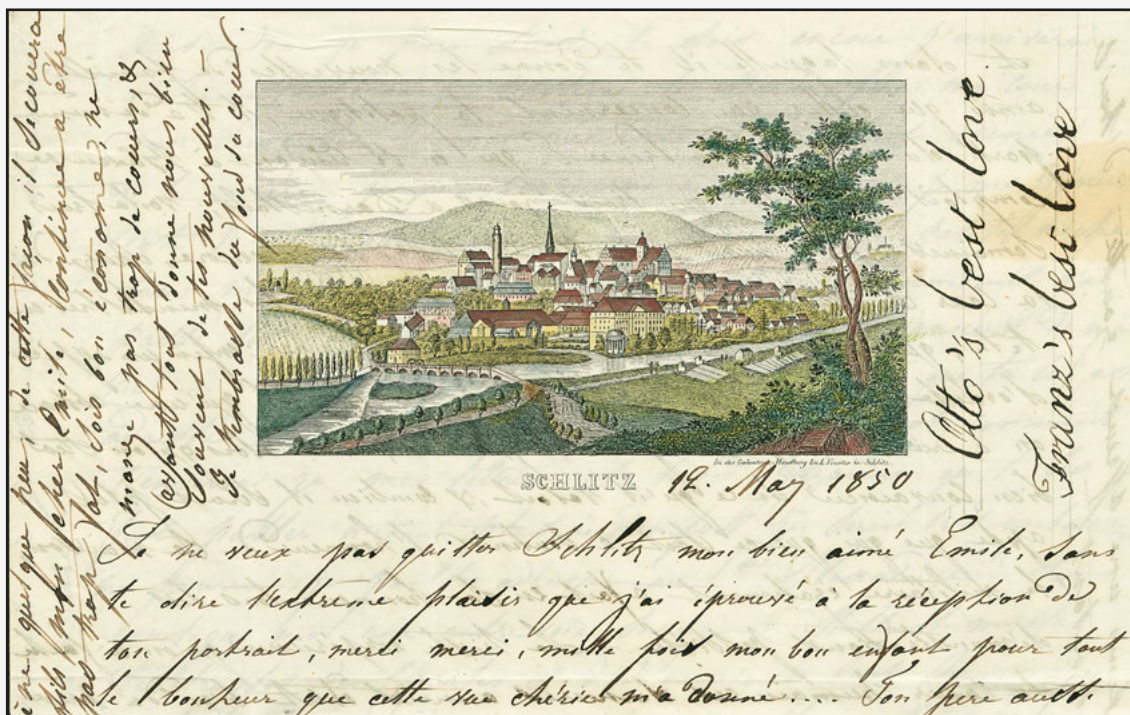 quelque peu, de cette façon il secouera
mon cher Emile, continue à être
pas trop fat, sois bon économe, ne
mange pas trop de coeurs, &
avant tout donne nous bien
souvent de tes nouvelles. –
Je t'embrasse du fond du coeur.
Otto's best love
Franz's best love
In der Handlung bei in Schlitz
SCHLITZ
12. May 1850
Je ne veux pas quitter Schlitz mon bien aimé Emile, sans
te dire l'extreme plaisir que j'ai éprouvé à la réception de
ton portrait, merci merci, mille fois mon bon enfant pour tout
le bonheur que cette vue chérie m'a donné.... Ton père aussi.